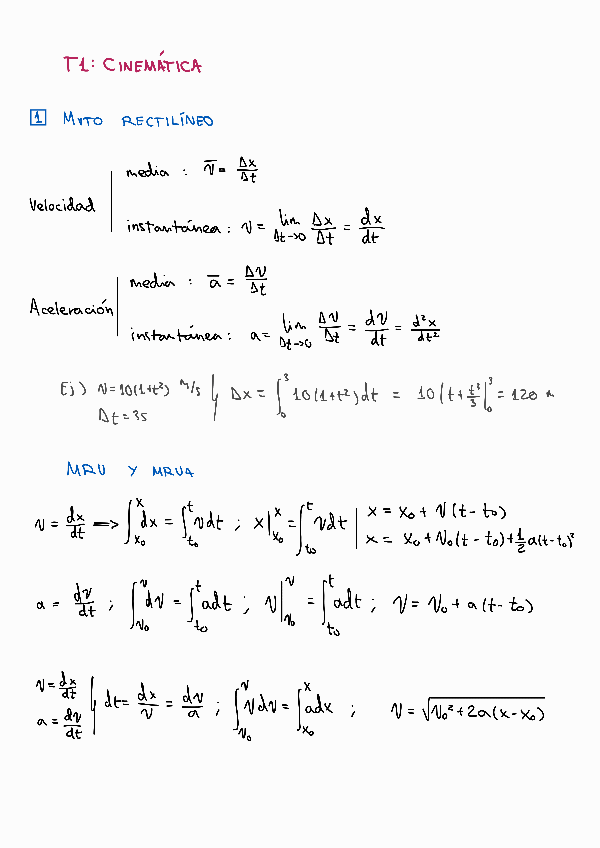 T1: CINEMÁTICA
1 MVTO RECTILÍNEO
Velocidad
media : v̅ = Δx/Δt
instantánea : v = lim Δt→0 Δx/Δt = dx/dt
Aceleración
media : a̅ = Δv/Δt
instantánea : a = lim Δt→0 Δv/Δt = dv/dt = d²x/dt²
Ej) v = 10(1+t²) m/s | Δx = ∫₀³ 10(1+t²)dt = 10(t + t³/3|₀³ = 120 m
Δt = 3s
MRU Y MRUA
v = dx/dt => ∫ₓ₀ˣ dx = ∫ₜ₀ᵗ vdt ; x|ₓ₀ˣ = ∫ₜ₀ᵗ vdt | x = x₀ + v(t - t₀)
x = x₀ + v₀(t - t₀) + 1/2 a(t - t₀)²
a = dv/dt ; ∫_v₀^v dv = ∫ₜ₀ᵗ adt ; v|_v₀^v = ∫ₜ₀ᵗ adt ; v = v₀ + a(t - t₀)
v = dx/dt
a = dv/dt
dt = dx/v = dv/a ; ∫_v₀^v vdv = ∫ₓ₀ˣ adx ; v = √(v₀² + 2a(x - x₀))